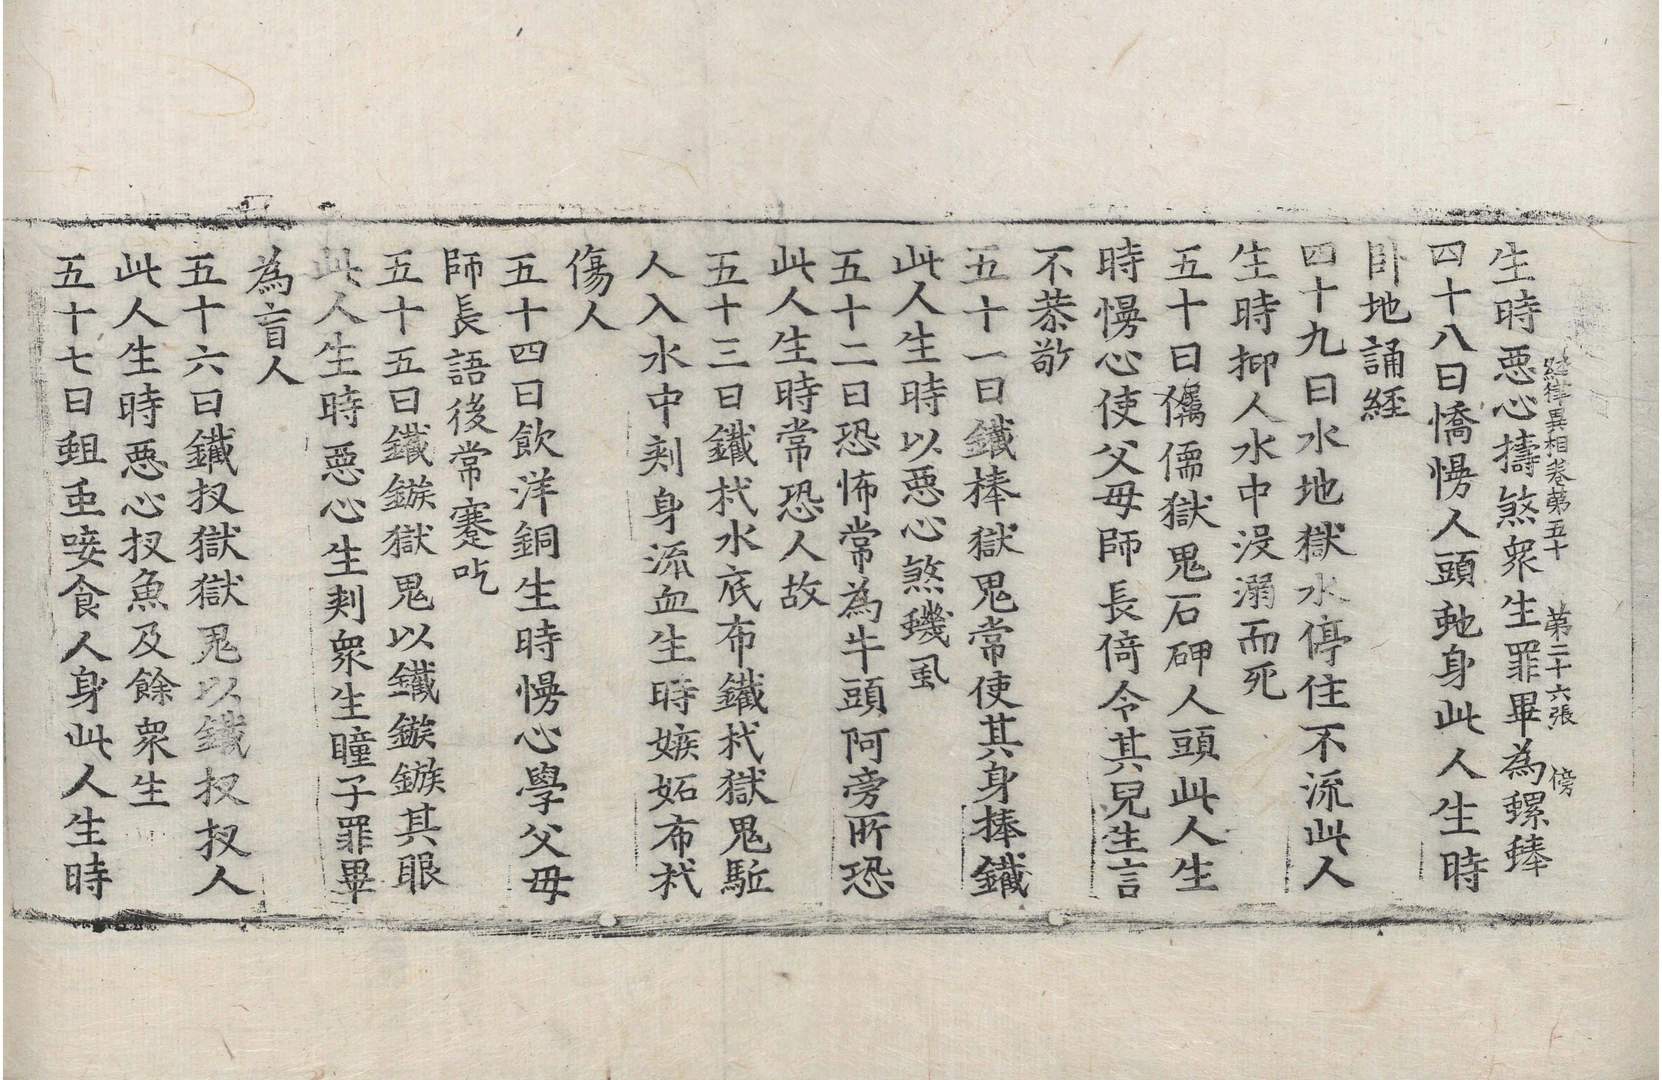 經律異相卷第五十　第二十六張　傍
生時惡心擣煞衆生罪畢為螺蜯
四十八曰憍慢人頭虵身此人生時
卧地誦經
四十九曰水地獄水停住不流此人
生時抑人水中没溺而死
五十曰㑩儒獄鬼石砰人頭此人生
時慢心使父母師長倚令其兒生言
不恭敬
五十一曰鐵棒獄鬼常使其身捧鐵
此人生時以惡心煞蟣虱
五十二曰恐怖常為牛頭阿旁所恐
此人生時常恐人故
五十三曰鐵杙水底布鐵杙獄鬼駈
人入水中刾身流血生時嫉妬布杙
傷人
五十四曰飲洋銅生時慢心學父母
師長語後常蹇吃
五十五曰鐵鏃獄鬼以鐵鏃鏃其眼
此人生時惡心生刾衆生瞳子罪畢
為盲人
五十六曰鐵杈獄獄鬼以鐵杈杈人
此人生時惡心杈魚及餘衆生
五十七曰蛆䖝唼食人身此人生時